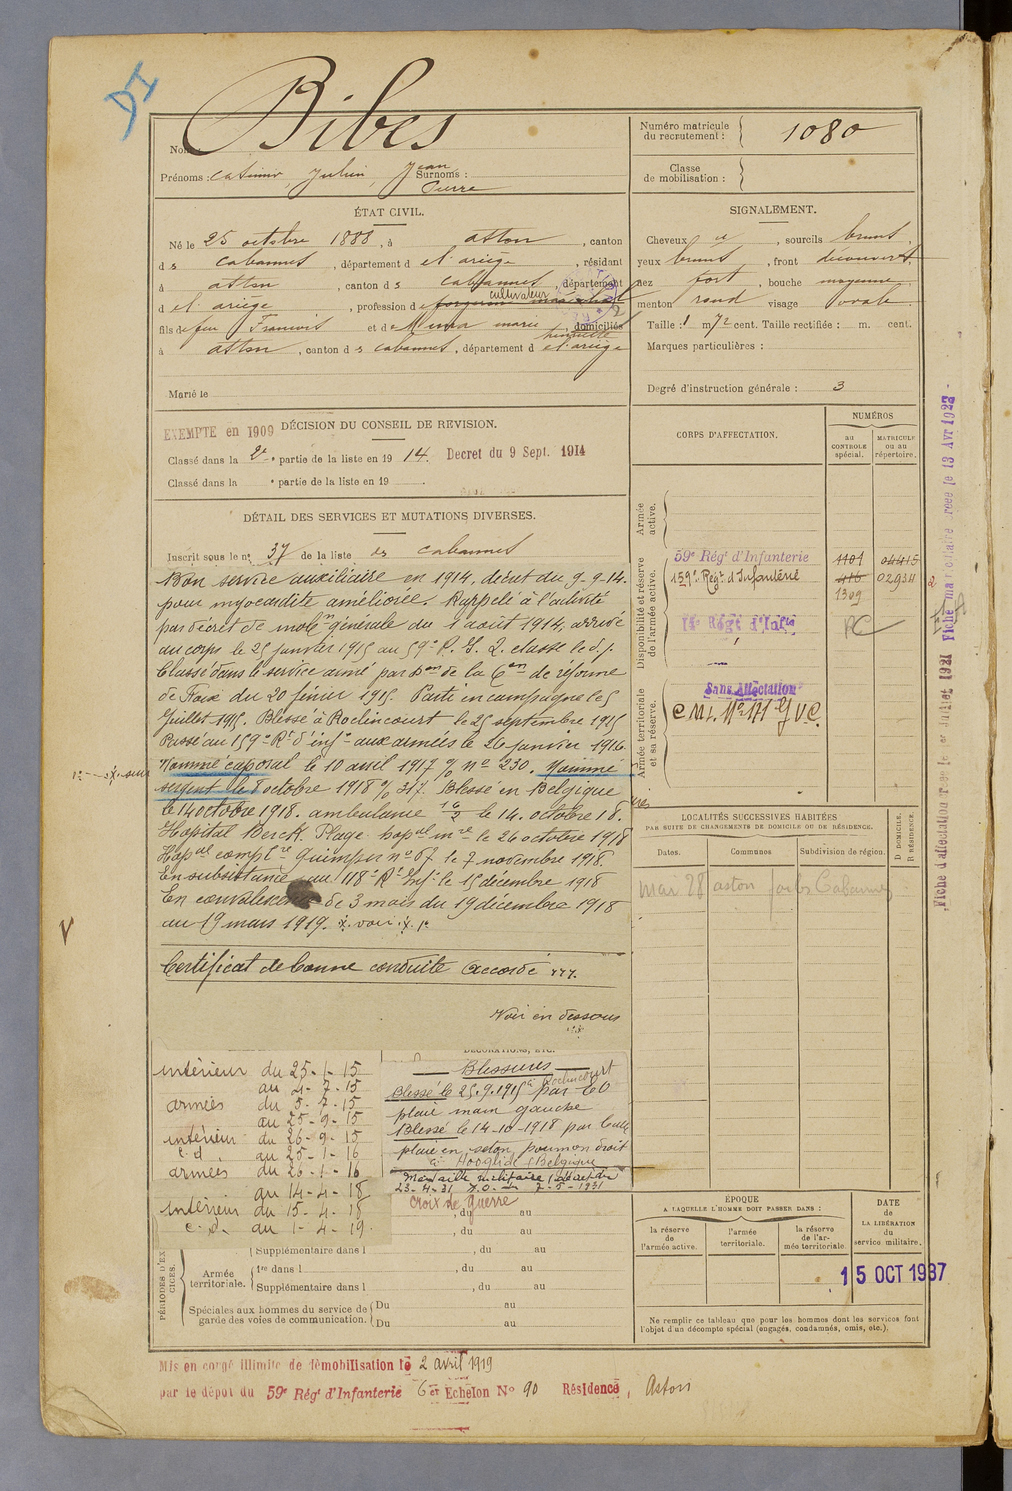 DI
Nom : Bibes
Prénoms : Casimir, Julien, Jean Pierre Surnoms :
Numéro matricule du recrutement : 1080
Classe de mobilisation :
ÉTAT CIVIL.
Né le 25 octobre 1888, à aston, canton
des cabannes, département de l'ariège, résidant
à aston, canton des cabannes, département
de l'ariège, profession de cultivateur
fils de feu François et de marie, domiciliés
à aston, canton des cabannes, département de l'ariège
Marié le
SIGNALEMENT.
Cheveux et, sourcils bruns,
yeux bruns, front découvert,
nez fort, bouche moyenne,
menton rond visage ovale
Taille : 1 m 72 cent. Taille rectifiée : m. cent.
Marques particulières :
Degré d'instruction générale : 3
EXEMPTE en 1909 DÉCISION DU CONSEIL DE REVISION.
Classé dans la 2e partie de la liste en 1914. Decret du 9 Sept. 1914
Classé dans la e partie de la liste en 19 .
DÉTAIL DES SERVICES ET MUTATIONS DIVERSES.
Inscrit sous le no 37 de la liste des cabannes
Bon service auxiliaire en 1914, décret du 9-9-14.
pour myocardite améliorée. Rappelé à l'activité
par décret de mobon générale du 1 août 1914, arrivé
au corps le 25 janvier 1915 au 59e R. I. 2e classe le d. j.
Classé dans le service armé par Don de la Con de réforme
de Foix du 20 février 1915. Parti en campagne le 5
Juillet 1915. Blessé à Roclincourt le 25 septembre 1915
Passé au 159e Rt d'infie aux armées le 26 janvier 1916.
Nommé caporal le 10 avril 1917 o/ no 230. Nommé
sergent le 8 octobre 1918 o/ 317. Blessé en Belgique
le 14 octobre 1918. ambulance 16/2 le 14. octobre 18.
Hopital Berck Plage hopal mre le 26 octobre 1918
Hopal complre Quimper no 67 le 7 novembre 1918.
En subsistance au 118e Rt Infie le 15 décembre 1918
En convalescence de 3 mois du 19 décembre 1918
au 19 mars 1919. voir
Certificat de bonne conduite accordé
Voir en dessous
CORPS D'AFFECTATION.
NUMÉROS
AU CONTROLE spécial.
MATRICULE ou au répertoire.
Armée active.
Disponibilité et réserve de l'armée active.
59e Régt d'Infanterie 1101 04415
159e Régt d'Infanterie 416 02934
1309
14e Régt d'Infie PC
Armée territoriale et sa réserve.
Sans Affectation
C M I. No 171 G V C.
LOCALITÉS SUCCESSIVES HABITÉES
PAR SUITE DE CHANGEMENTS DE DOMICILE OU DE RÉSIDENCE.
Dates. Communes Subdivision de région. D DOMICILE. R RÉSIDENCE.
Mar 28 aston
Fiche d'affectation Juillet 1921 Fiche matriculaire 13 Avr 1922
DÉCORATIONS, ETC.
intérieur du 25-1-15
au 4-7-15
armées du 5-7-15
au 25-9-15
intérieur du 26-9-15
c. d. au 25-1-16
armées du 26-1-16
au 14-4-18
intérieur du 15-4-18
c. d. au 1-4-19.
Blessures
Blessé le 25.9.1915 à Roclincourt par
plaie main gauche
Blessé le 14-10-1918 par balle
plaie en seton poumon droit
à Hooglide (Belgique)
Médaille militaire
23-4-31 J.O. 7-5-1931
Croix de guerre
, du au
, du au
PÉRIODES D'EXERCICES.
Supplémentaire dans l , du au
Armée territoriale.
1re dans l , du au
Supplémentaire dans l , du au
Spéciales aux hommes du service de garde des voies de communication.
Du au
Du au
ÉPOQUE
A LAQUELLE L'HOMME DOIT PASSER DANS :
la réserve de l'armée active.
l'armée territoriale.
la réserve de l'armée territoriale
DATE de LA LIBÉRATION du service militaire.
15 OCT 1937
Ne remplir ce tableau que pour les hommes dont les services font l'objet d'un décompte spécial (engagés, condamnés, omis, etc.).
Mis en congé illimité de démobilisation le 2 avril 1919
par le dépôt du 59e Régt d'Infanterie 6er Echelon No 90 Résidence, Aston